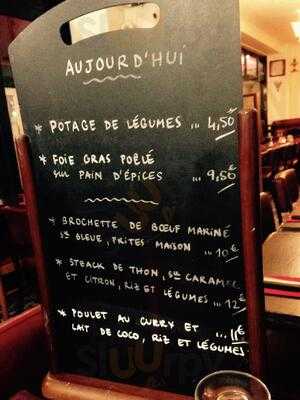 AUJOURD'HUI
* POTAGE DE LÉGUMES ... 4,50€
* FOIE GRAS POÊLÉ
sur PAIN D'ÉPICES ... 9,50€
* BROCHETTE DE BŒUF MARINÉ
SCE BLEUE, FRITES MAISON ... 10€
* STEACK DE THON, SCE CARAMEL
ET CITRON, RIZ ET LÉGUMES ... 12€
* POULET AU CURRY ET
LAIT DE COCO, RIZ ET LÉGUMES ... 11€
sluurpy